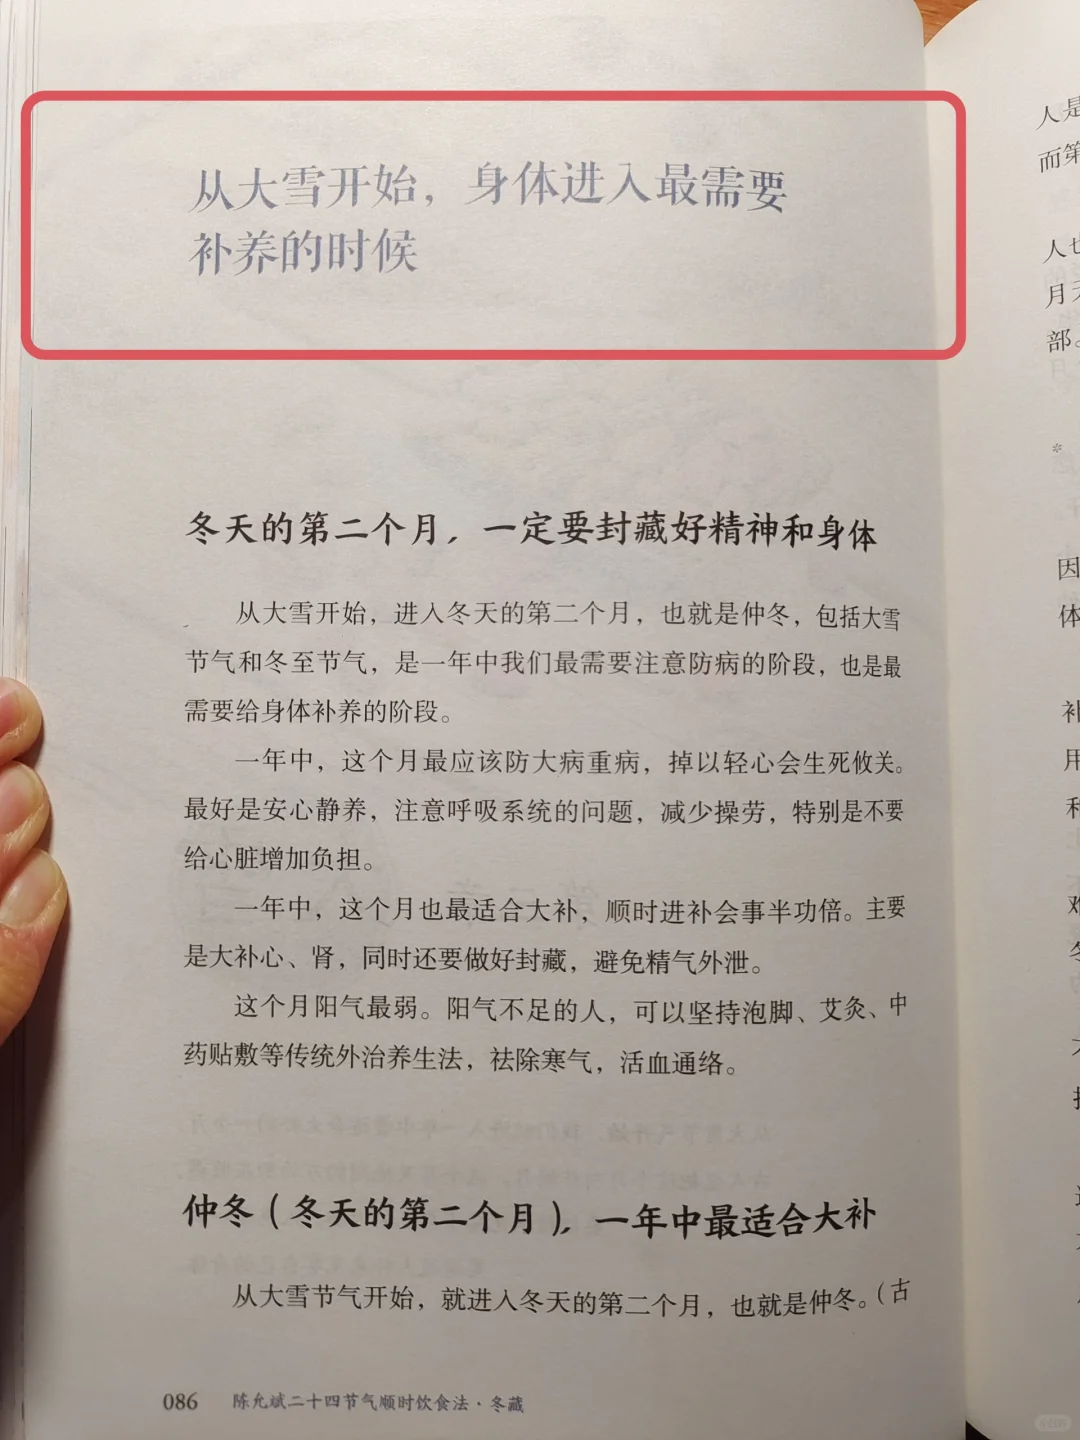 从大雪开始，身体进入最需要
补养的时候
冬天的第二个月，一定要封藏好精神和身体
从大雪开始，进入冬天的第二个月，也就是仲冬，包括大雪
节气和冬至节气，是一年中我们最需要注意防病的阶段，也是最
需要给身体补养的阶段。
一年中，这个月最应该防大病重病，掉以轻心会生死攸关。
最好是安心静养，注意呼吸系统的问题，减少操劳，特别是不要
给心脏增加负担。
一年中，这个月也最适合大补，顺时进补会事半功倍。主要
是大补心、肾，同时还要做好封藏，避免精气外泄。
这个月阳气最弱。阳气不足的人，可以坚持泡脚、艾灸、中
药贴敷等传统外治养生法，祛除寒气，活血通络。
仲冬（冬天的第二个月），一年中最适合大补
从大雪节气开始，就进入冬天的第二个月，也就是仲冬。（古
086 陈允斌二十四节气顺时饮食法·冬藏
人是
而第
人也
月
部。
*
因
体
补
用